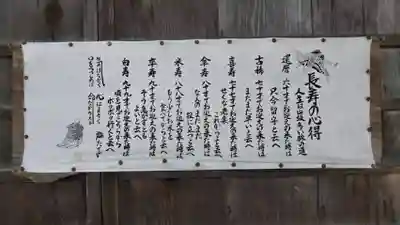 長寿の心得
人生は山坂多い旅の道
還暦 六十才でお迎えの来た時は
只今留守と云へ
古稀 七十才でお迎えの来た時は
まだまだ早いと云へ
喜寿 七十七才でお迎えの来た時は
せくな老楽
これからよと云へ
傘寿 八十才でお迎えの来た時は
なんのまだまだ
役に立つと云へ
米寿 八十八才でお迎えの来た時は
もう少しお米を
食べてからと云へ
卒寿 九十才でお迎えの来た時は
そう急がずともよいと云へ
白寿 九十九才でお迎えの来た時は
頃を見てこちらから
ボツボツ行くと云へ
気はながく
心はまるく
腹たてず
口をつつしめば
命ながらへる